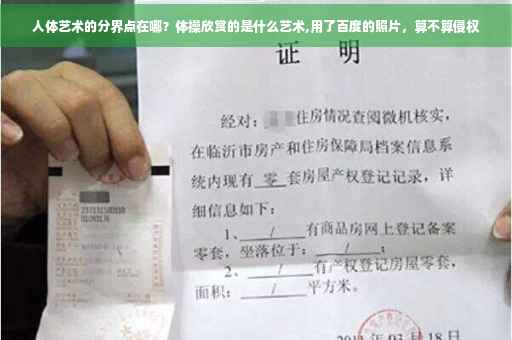 人体艺术的分界点在哪？体操欣赏的是什么艺术,用了百度的照片，算不算侵权
证 明
经对：住房情况查阅微机核实，
在临沂市房产和住房保障局档案信息系
统内现有 零 套房屋产权登记记录，详
细信息如下：
1、 / 有商品房网上登记备案
零套，坐落位于： / ；
2、 / 有产权登记房屋零套，
面积： / 平方米。
18日